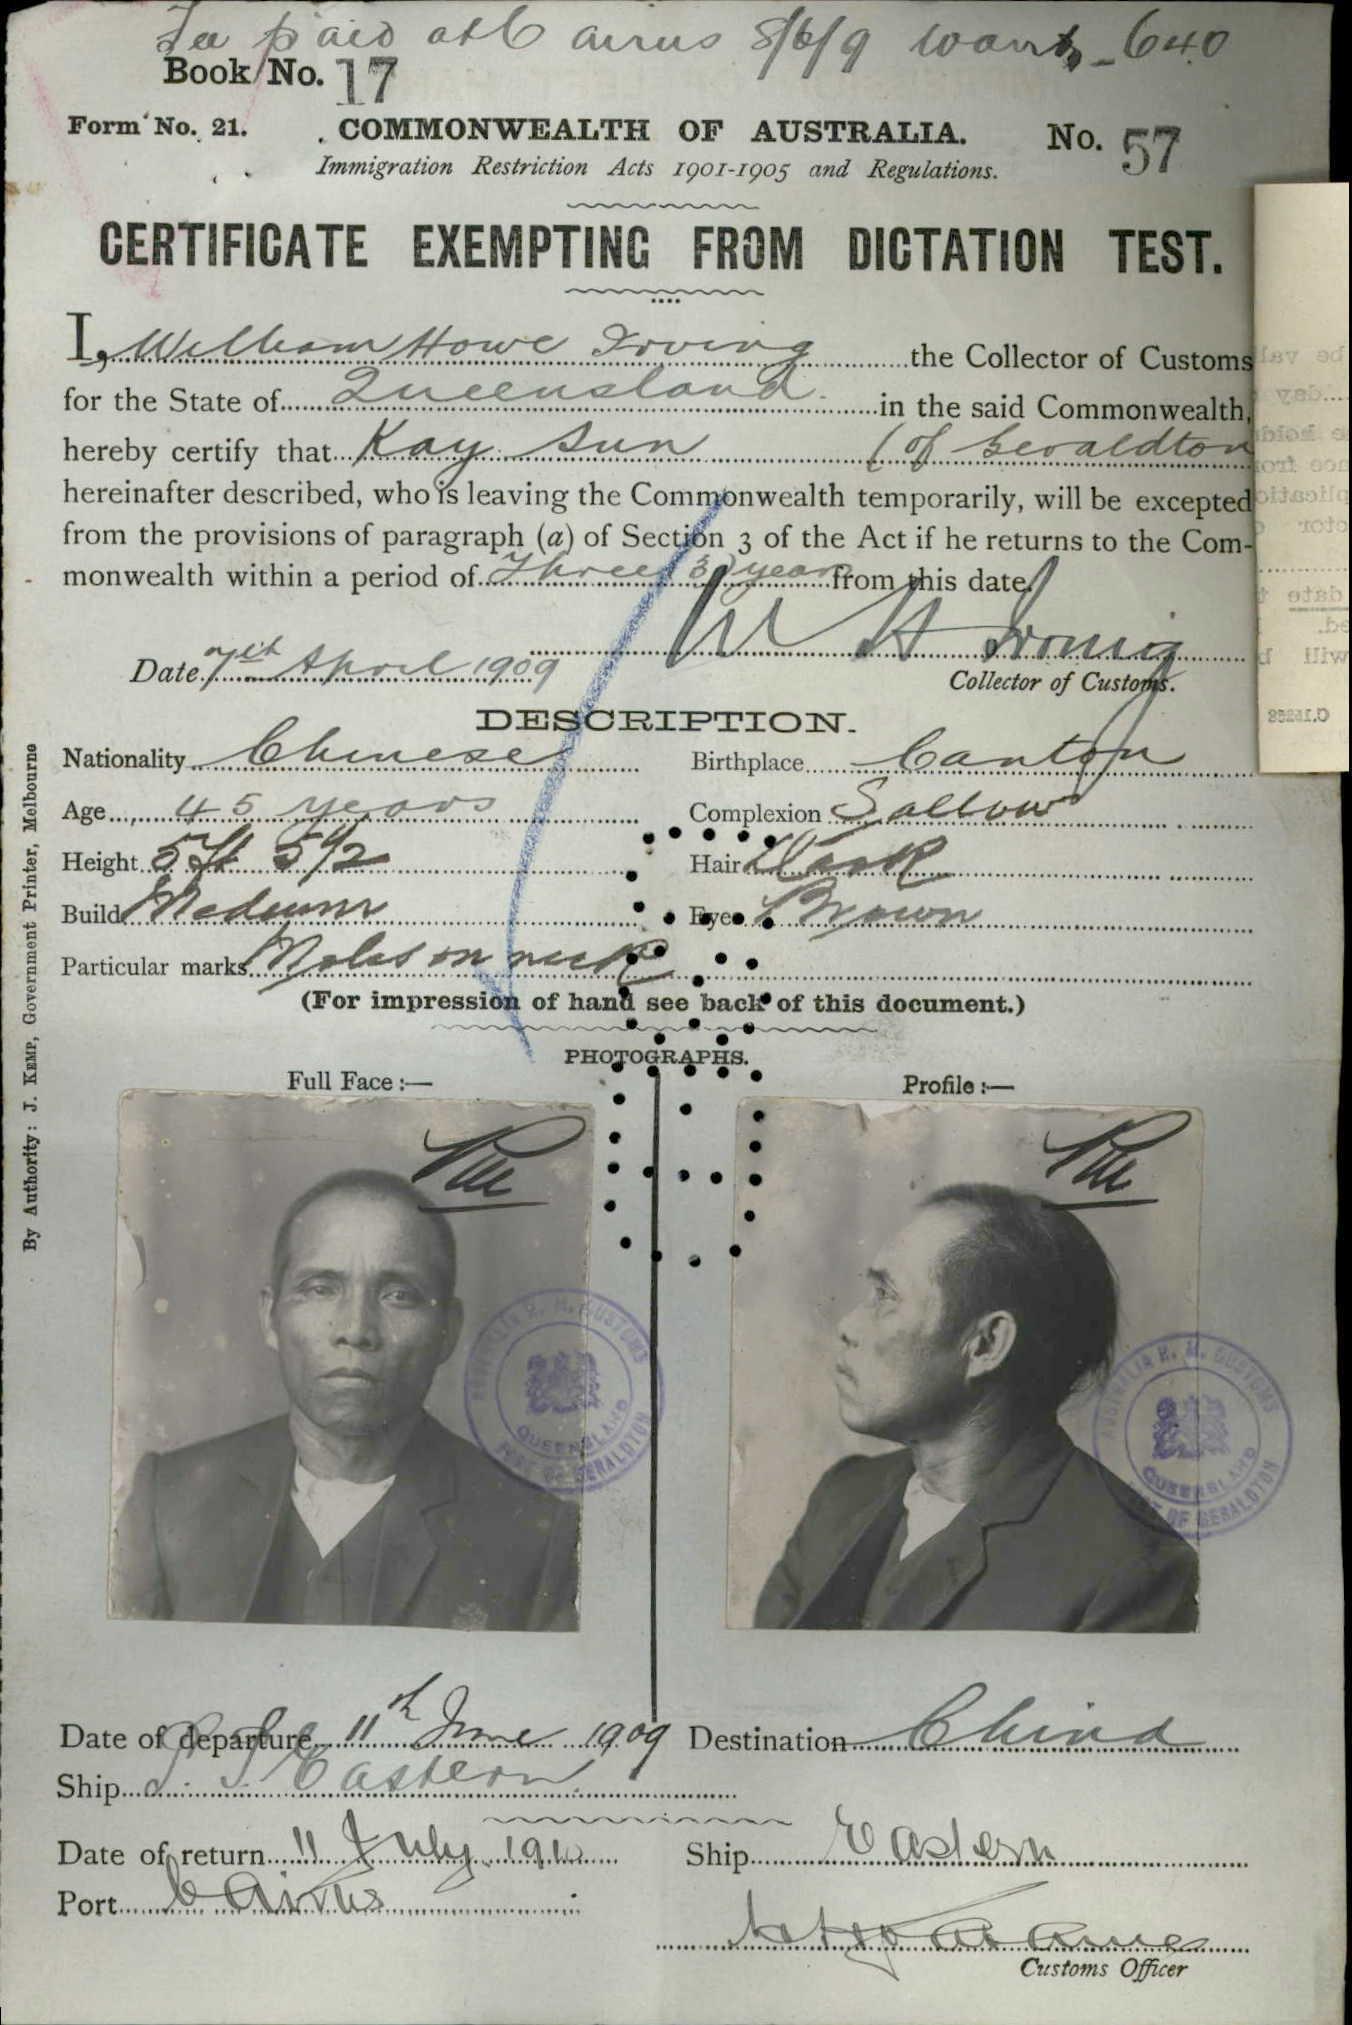 Fee paid at Cairns 8/6/9 Warrt 640
Book No. 17
Form No. 21.
COMMONWEALTH OF AUSTRALIA.
No. 57
Immigration Restriction Acts 1901-1905 and Regulations.
CERTIFICATE EXEMPTING FROM DICTATION TEST.
I, William Howe Irving the Collector of Customs
for the State of Queensland in the said Commonwealth,
hereby certify that Kay Sun (of Geraldton
hereinafter described, who is leaving the Commonwealth temporarily, will be excepted
from the provisions of paragraph (a) of Section 3 of the Act if he returns to the Com-
monwealth within a period of Three (3) years from this date.
W H Irving
Date 7th April 1909
Collector of Customs.
DESCRIPTION.
Nationality Chinese
Birthplace Canton
Age 45 years
Complexion Sallow
Height 5ft 5 1/2
Hair Dark
Build Medium
Eyes Brown
Particular marks Moles on neck
(For impression of hand see back of this document.)
PHOTOGRAPHS.
Full Face :—
Profile :—
AUSTRALIA H. M. CUSTOMS
QUEENSLAND
PORT OF GERALDTON
AUSTRALIA H. M. CUSTOMS
QUEENSLAND
PORT OF GERALDTON
Date of departure 11th June 1909
Destination China
Ship S. S. Eastern
Date of return 11 July 1910
Ship Eastern
Port Cairns
Customs Officer
By Authority: J. KEMP, Government Printer, Melbourne